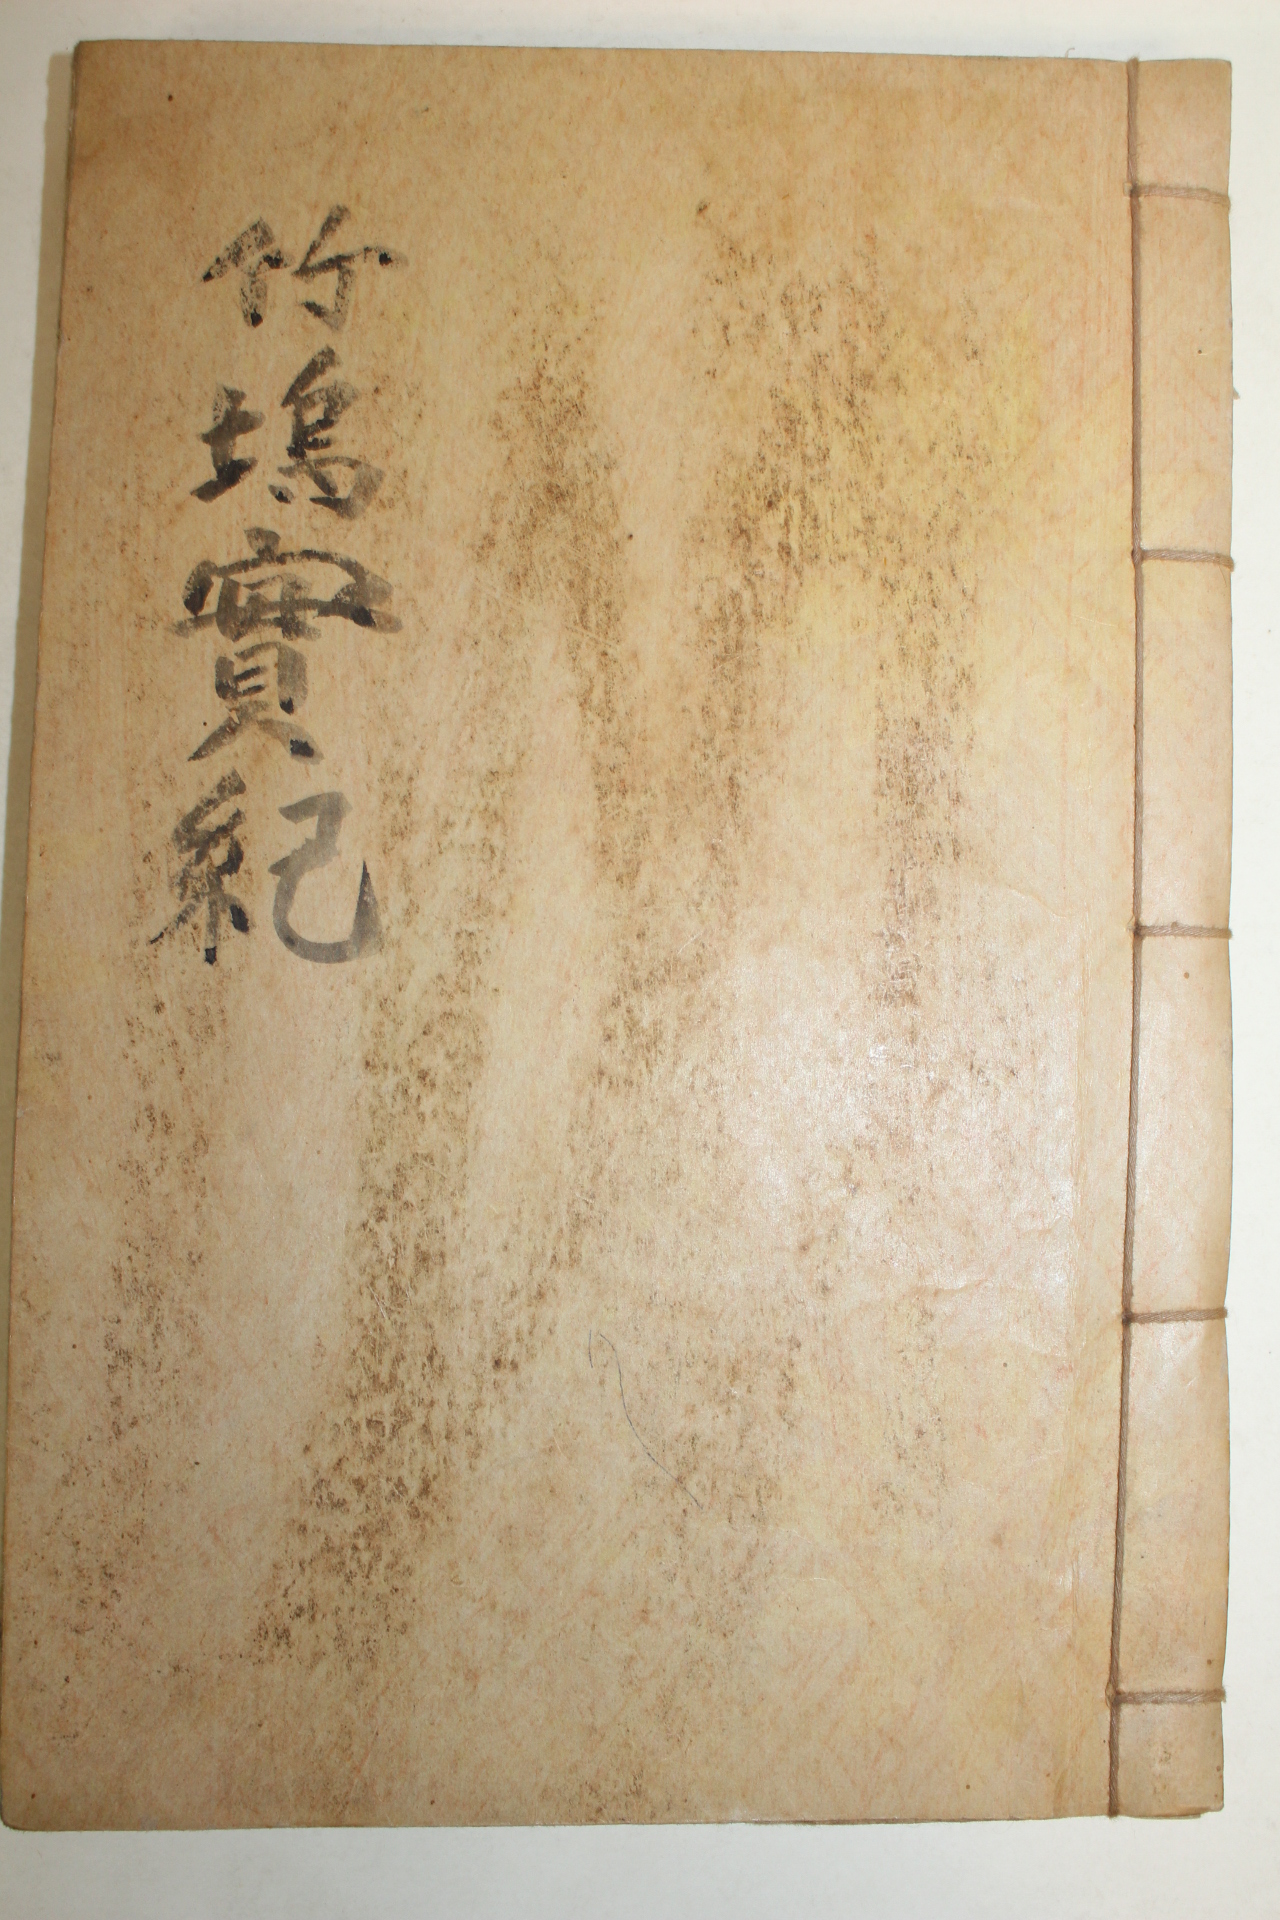 竹塢實紀